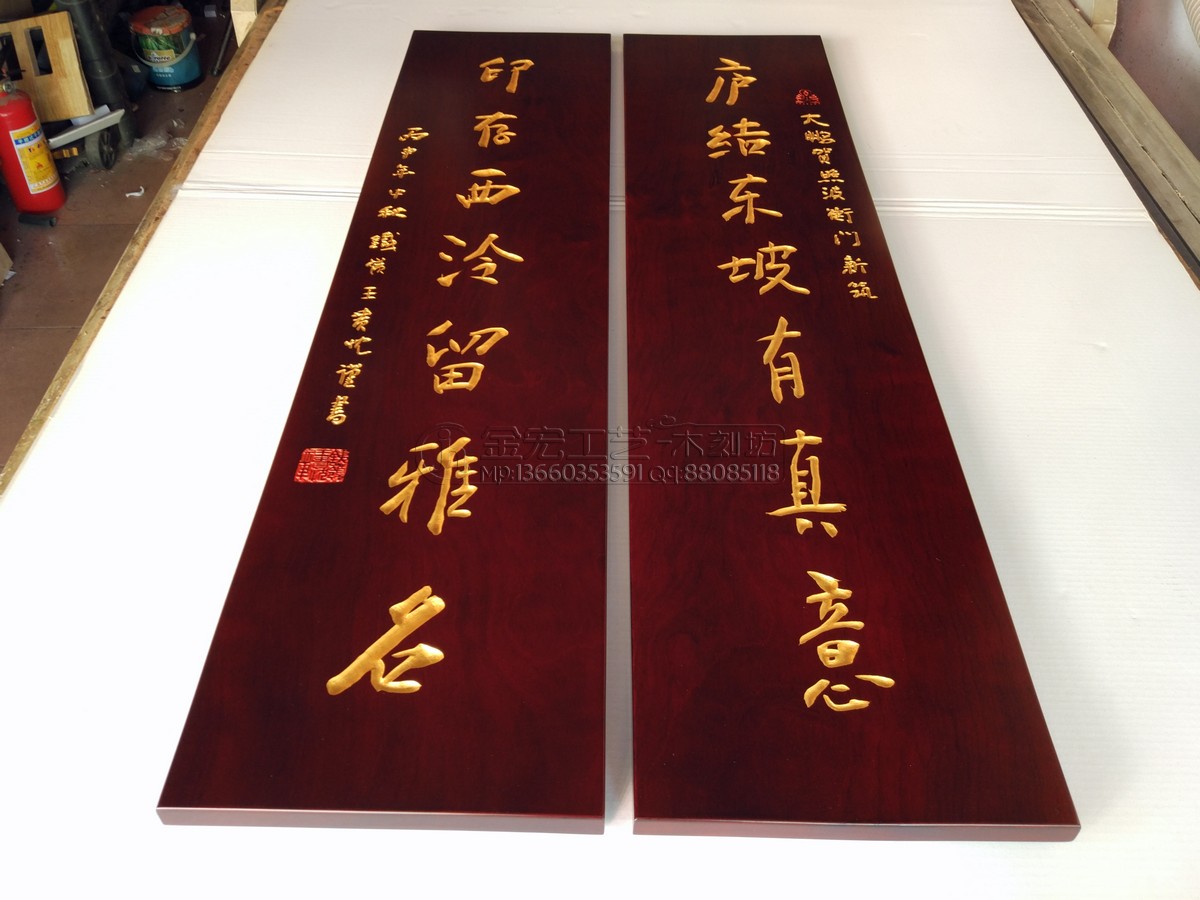 大鹏贺照波衡门新筑
庐结东坡有真意
印存西泠留雅名
丙申年中秋鐵嶺王貴忱謹書
金宏工艺木刻坊
MP:13660353591 QQ:88085118